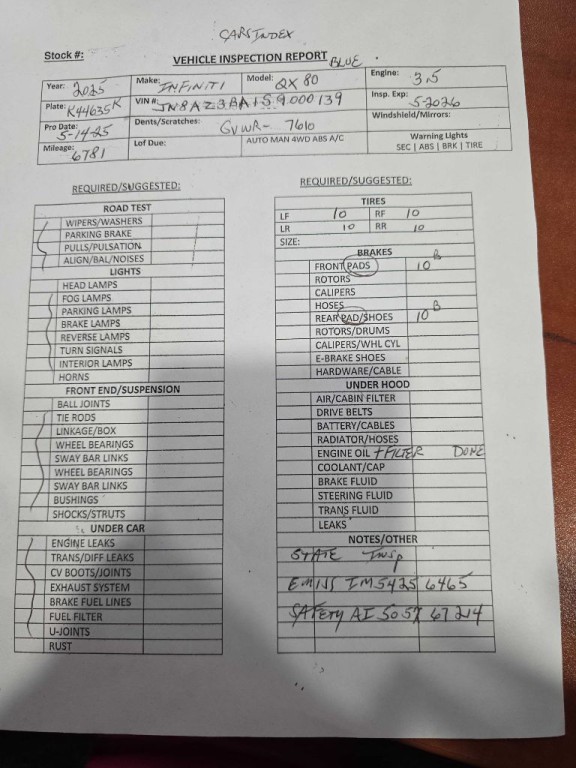 CARSINDEX
Stock #:
VEHICLE INSPECTION REPORT BLUE
Year: 2025 Make: INFINITI Model: QX 80 Engine: 3.5
Plate: K44635K VIN #: JN8AZ3BA1S9000139 Insp. Exp: 5-2026
Pro Date: 5-14-25 Dents/Scratches: GVWR- 7610 Windshield/Mirrors:
Mileage: 6781 Lof Due: AUTO MAN 4WD ABS A/C Warning Lights
SEC | ABS | BRK | TIRE
REQUIRED/SUGGESTED:
ROAD TEST
WIPERS/WASHERS
PARKING BRAKE
PULLS/PULSATION
ALIGN/BAL/NOISES
LIGHTS
HEAD LAMPS
FOG LAMPS
PARKING LAMPS
BRAKE LAMPS
REVERSE LAMPS
TURN SIGNALS
INTERIOR LAMPS
HORNS
FRONT END/SUSPENSION
BALL JOINTS
TIE RODS
LINKAGE/BOX
WHEEL BEARINGS
SWAY BAR LINKS
WHEEL BEARINGS
SWAY BAR LINKS
BUSHINGS
SHOCKS/STRUTS
UNDER CAR
ENGINE LEAKS
TRANS/DIFF LEAKS
CV BOOTS/JOINTS
EXHAUST SYSTEM
BRAKE FUEL LINES
FUEL FILTER
U-JOINTS
RUST
REQUIRED/SUGGESTED:
TIRES
LF 10 RF 10
LR 10 RR 10
SIZE:
BRAKES
FRONT PADS 10 B
ROTORS
CALIPERS
HOSES
REAR PAD/SHOES 10 B
ROTORS/DRUMS
CALIPERS/WHL CYL
E-BRAKE SHOES
HARDWARE/CABLE
UNDER HOOD
AIR/CABIN FILTER
DRIVE BELTS
BATTERY/CABLES
RADIATOR/HOSES
ENGINE OIL + FILTER DONE
COOLANT/CAP
BRAKE FLUID
STEERING FLUID
TRANS FLUID
LEAKS
NOTES/OTHER
STATE Insp
EMISS IM5425 6465
SAFETY AI 5057 67214